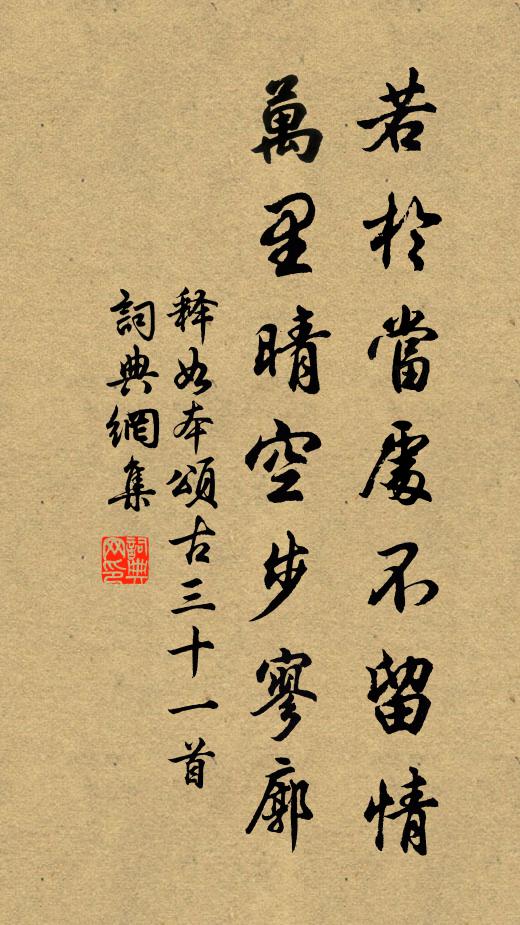 若於當處不留情
萬里晴空步寥廓
释如本頌古三十一首
詞典網集
詞典网印